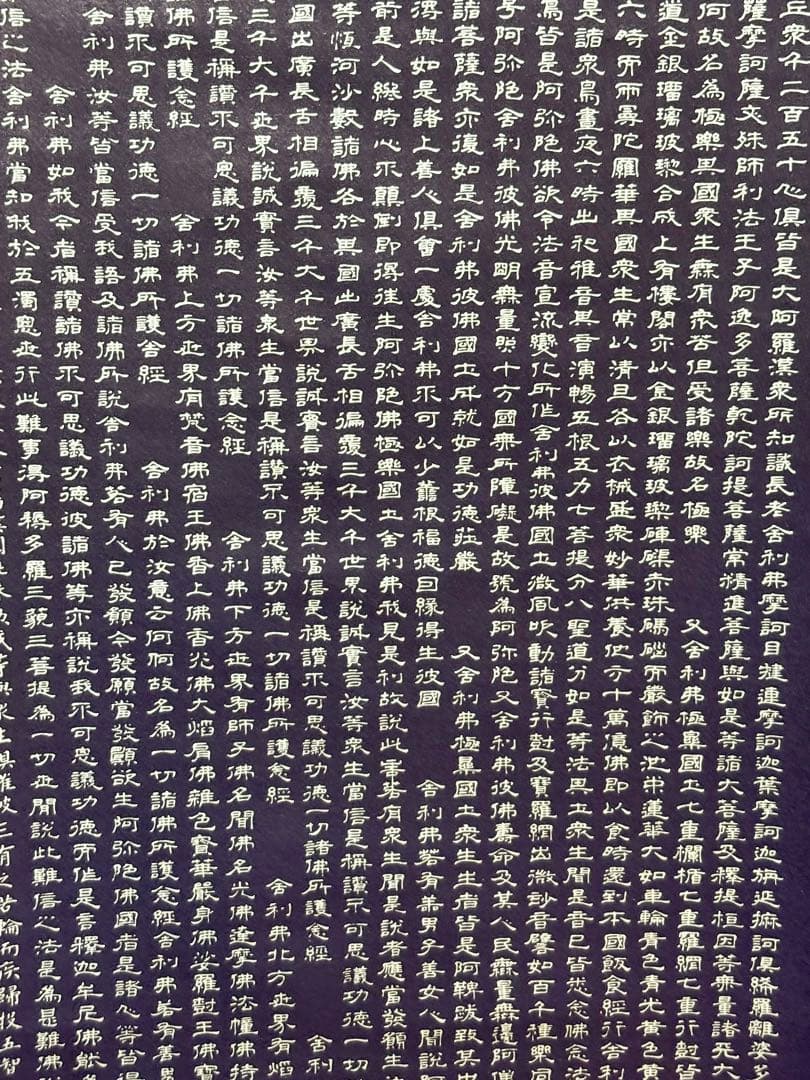 丘衆千二百五十人俱皆是大阿羅漢衆所知識長老舍利弗摩訶目揵連摩訶迦葉摩訶迦旃延摩訶俱絺羅離婆多
薩摩訶薩文殊師利法王子阿逸多菩薩乾陀訶提菩薩常精進菩薩與如是等諸大菩薩及釋提桓因等無量諸天大
何故名為極樂其國衆生無有衆苦但受諸樂故名極樂 又舍利弗極樂國土七重欄楯七重羅網七重行樹皆
道金銀瑠璃玻瓈合成上有樓閣亦以金銀瑠璃玻瓈硨磲赤珠碼碯而嚴飾之池中蓮華大如車輪青色青光黃色黃
六時而雨曼陀羅華其國衆生常以清旦各以衣祴盛衆妙華供養他方十萬億佛即以食時還到本國飯食經行舍利
是諸衆鳥晝夜六時出和雅音其音演暢五根五力七菩提分八聖道分如是等法其土衆生聞是音已皆悉念佛念法
為皆是阿弥陁佛欲令法音宣流變化所作舍利弗彼佛國土微風吹動諸寶行樹及寶羅網出微妙音譬如百千種樂同
子阿弥陁舍利弗彼佛光明無量照十方國無所障礙是故號為阿弥陁又舍利弗彼佛壽命及其人民無量無邊阿僧
諸菩薩衆亦復如是舍利弗彼佛國土成就如是功德莊嚴 又舍利弗極樂國土衆生生者皆是阿鞞跋致其中
得與如是諸上善人俱會一處舍利弗不可以少善根福德因緣得生彼國 舍利弗若有善男子善女人聞說阿
前是人終時心不顛倒即得往生阿弥陁佛極樂國土舍利弗我見是利故說此言若有衆生聞是說者應當發願生
等恆河沙數諸佛各於其國出廣長舌相徧覆三千大千世界說誠實言汝等衆生當信是稱讚不可思議功德一切
國出廣長舌相徧覆三千大千世界說誠實言汝等衆生當信是稱讚不可思議功德一切諸佛所護念經 舍利
三千大千世界說誠實言汝等衆生當信是稱讚不可思議功德一切諸佛所護念經 舍利弗北方世界有焰
信是稱讚不可思議功德一切諸佛所護念經 舍利弗下方世界有師子佛名聞佛名光佛達摩佛法幢佛持
佛所護念經 舍利弗上方世界有梵音佛宿王佛香上佛香光佛大焰肩佛雜色寶華嚴身佛娑羅樹王佛寶
讚不可思議功德一切諸佛所護念經 舍利弗於汝意云何何故名為一切諸佛所護念經舍利弗若有善男
舍利弗汝等皆當信受我語及諸佛所說舍利弗若有人已發願今發願當發願欲生阿弥陁佛國者是諸人等皆得
舍利弗如我今者稱讚諸佛不可思議功德彼諸佛等亦稱說我不可思議功德而作是言釋迦牟尼佛能
信之法舍利弗當知我於五濁惡世行此難事得阿耨多羅三藐三菩提為一切世間說此難信之法是為甚難佛說